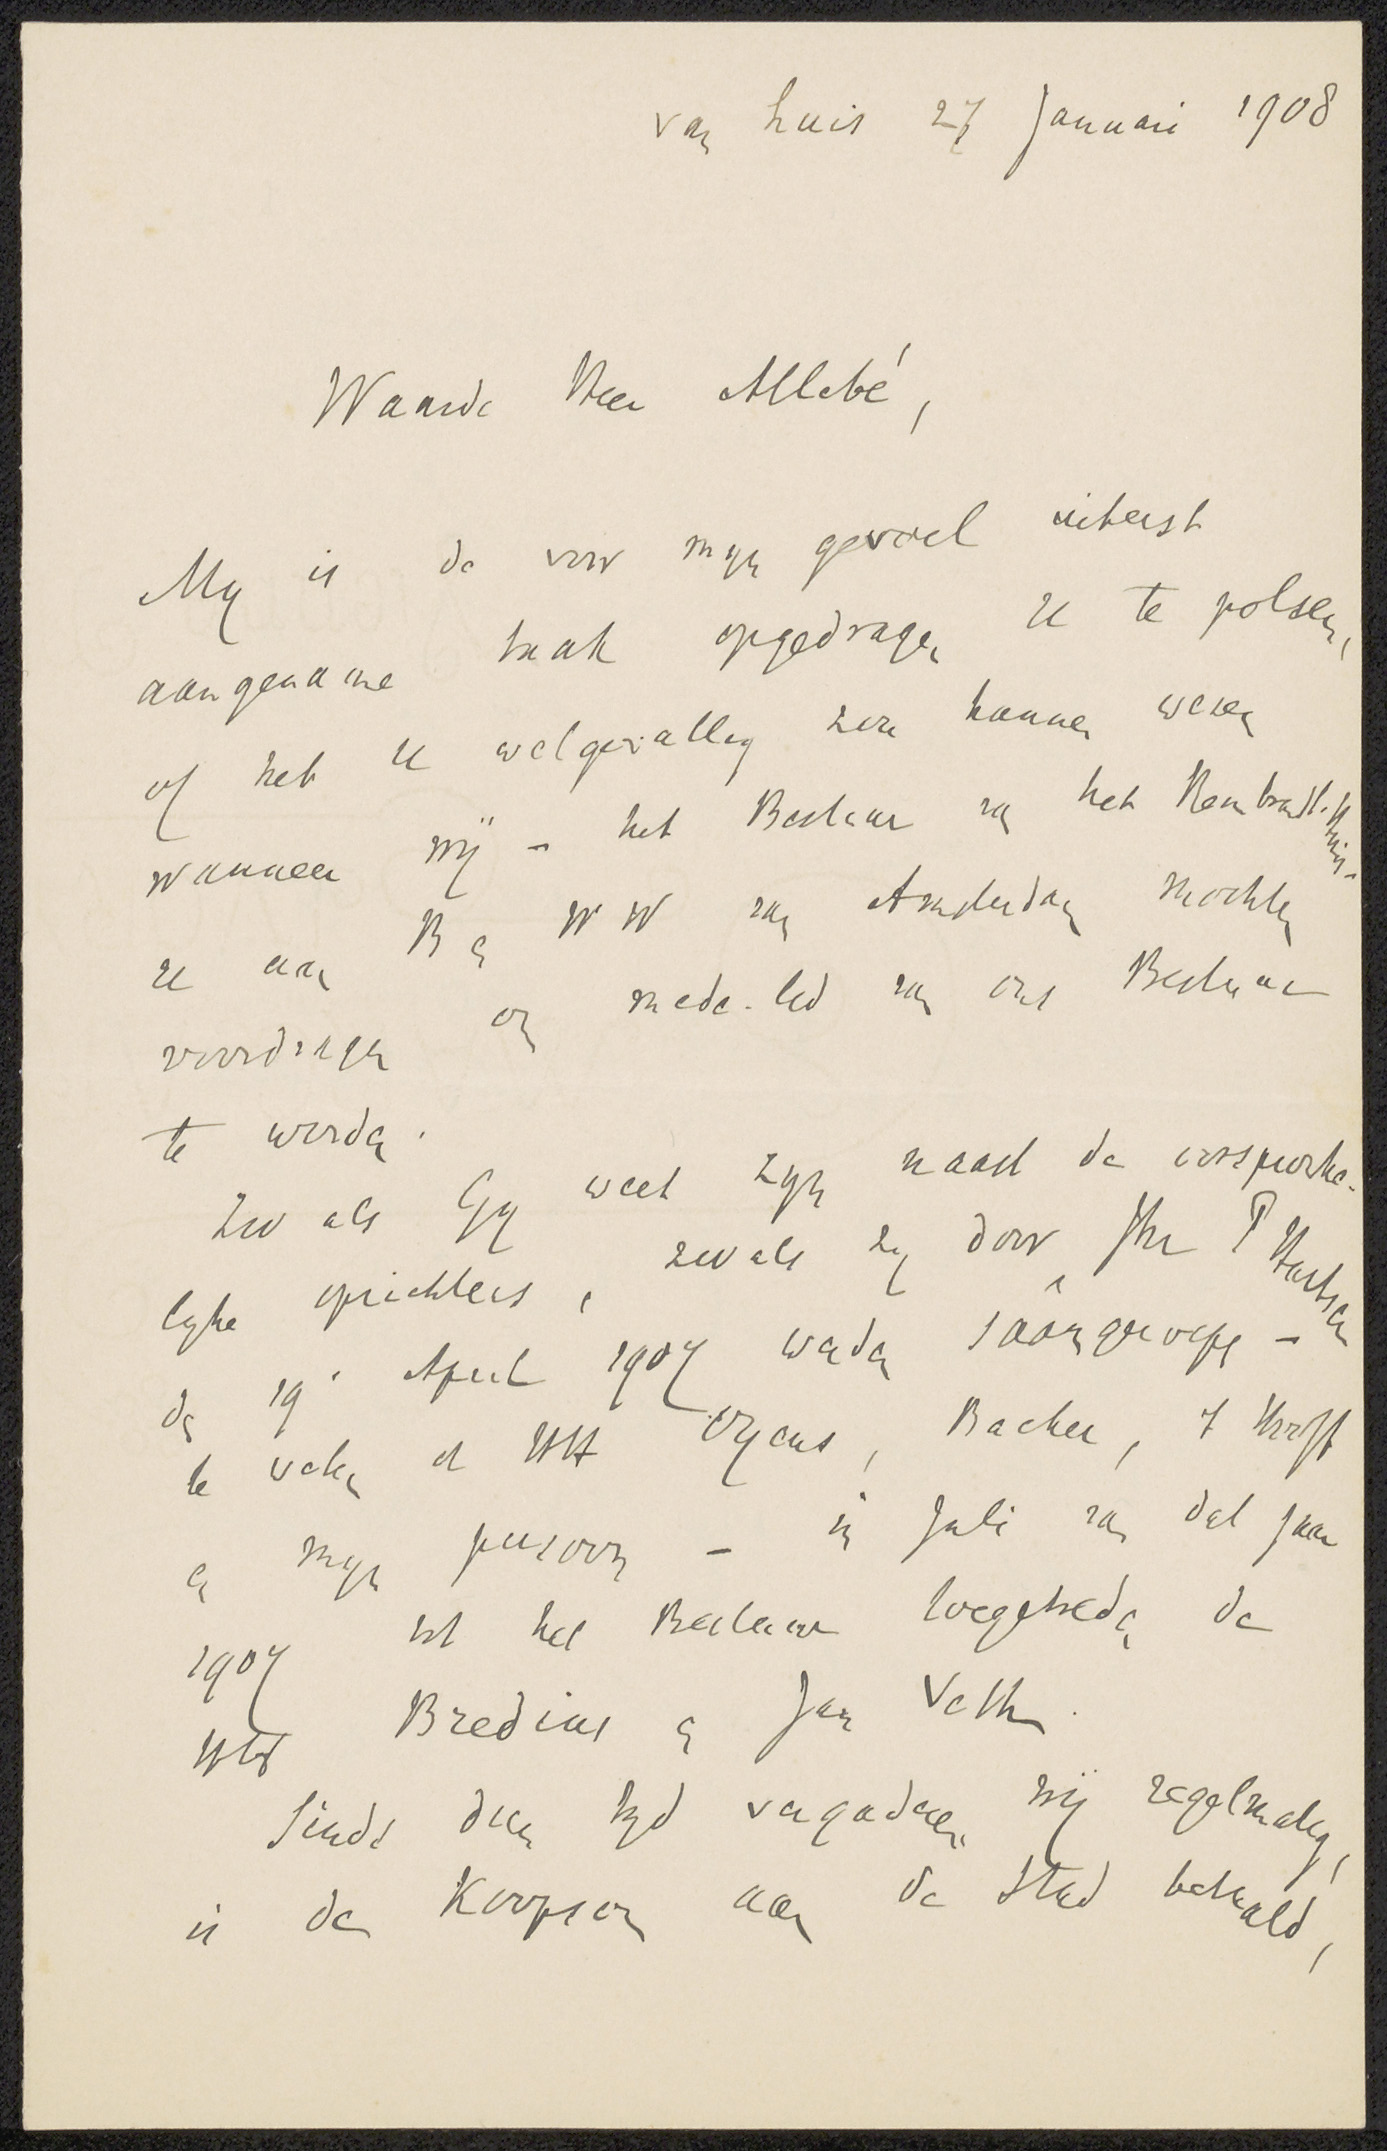 van huis 27 Januari 1908
Waarde Heer Allebé,
My is de voor myn gevoel uiterst
aangename taak opgedragen U te polsen,
of het U welgevallig zou kunnen wezen
wanneer wij - het Bestuur van het Rembrandt-Huis -
U aan B en W W van Amsterdam mochten
voordragen om mede-lid van ons Bestuur
te worden.
Zoo als Gy weet zyn naast de oorspronke-
lyke oprichters, zooals zy door Jhr P Hartsen
den 19e April 1907 werden sâamgeroepen -
te weten de HH Oyens, Backer, 't Hooft
en myn persoon - in Juli van dat jaar
1907 tot het Bestuur toegetreden de
HH Bredius en Jan Veth.
Sinds dien tyd vergaderen wij regelmatig,
is de Koopsom aan de Stad betaald,